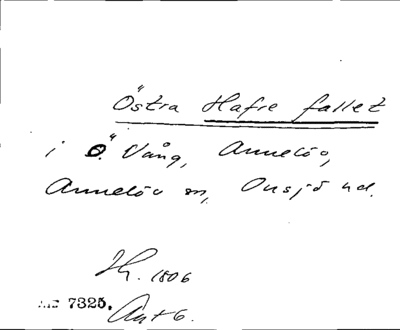 Östra Hafre fallet
i Ö. Vång, Annelöv,
Annelöv sn, Onsjö hd.
Th. 1806
7325. Akt 6.